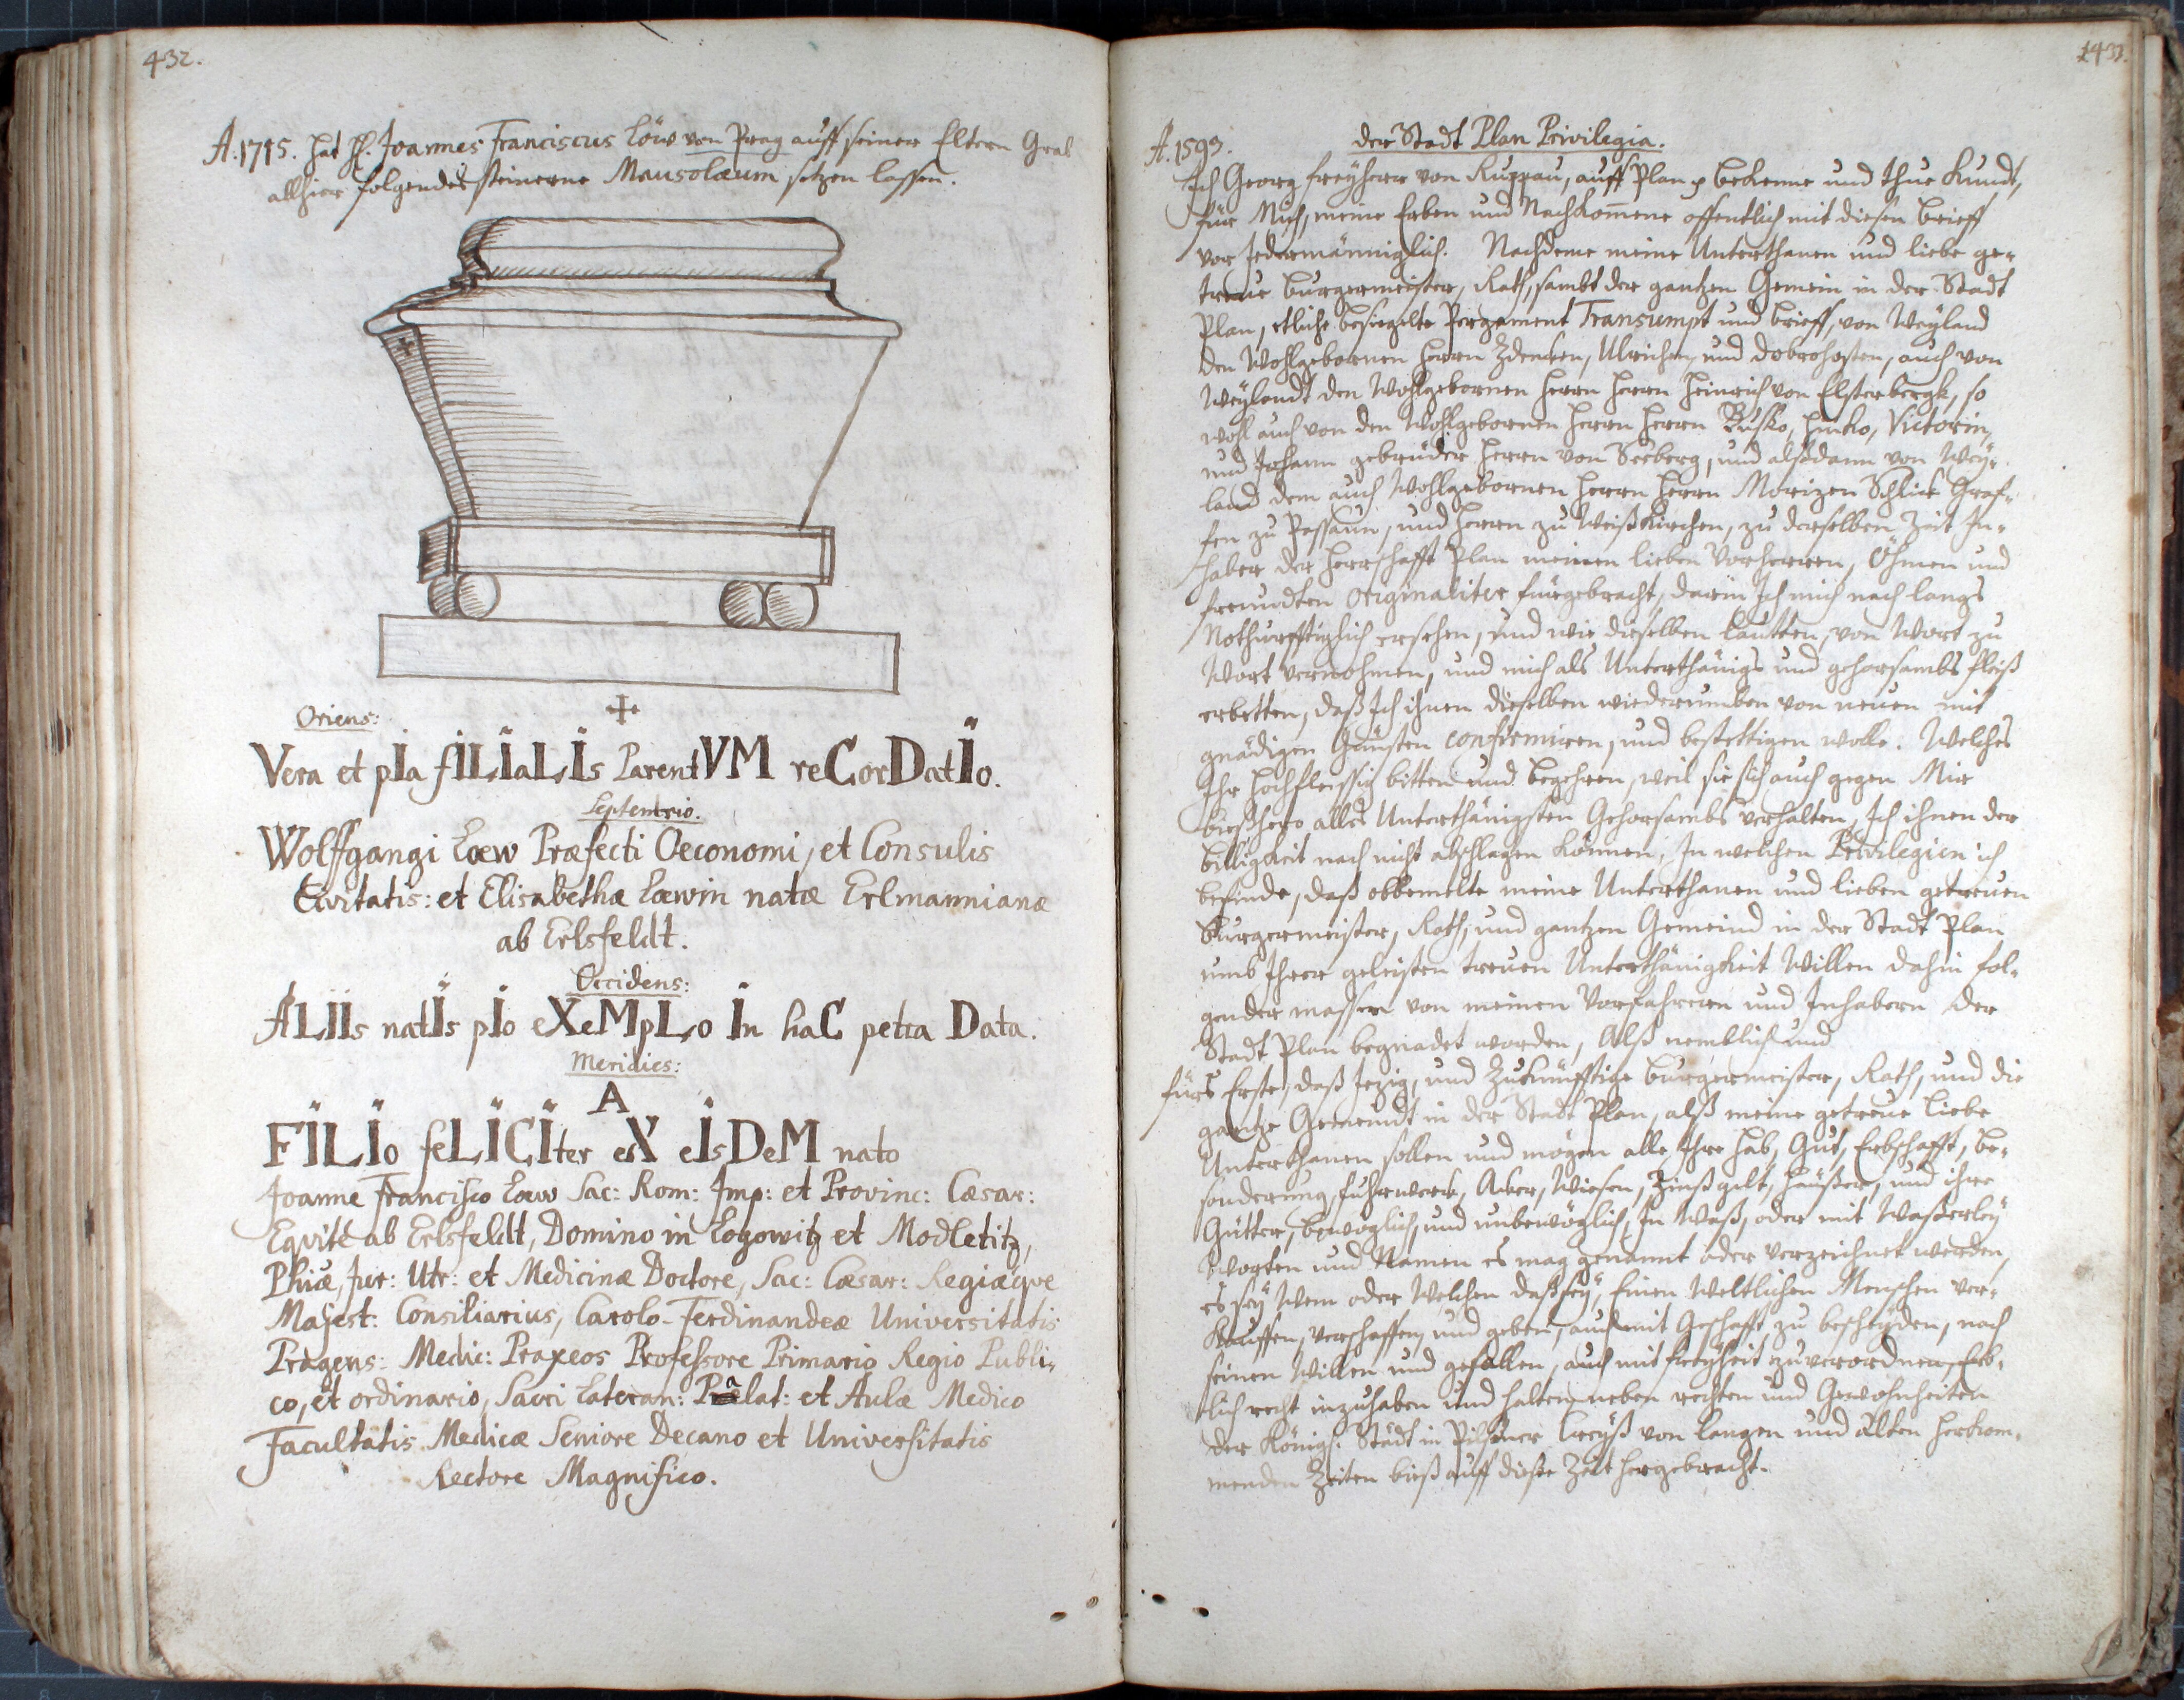 432.
A. 1715. hat H. Joannes Franciscus Löw von Prag auff seiner Eltern Grab
allhier folgendes steinerne Mausolæum setzen lassen.
Oriens:
Vera et pIa fILIaLIs ParentVM reCorDatIo.
Septentrio.
Wolffgangi Loew Præfecti Oeconomi, et Consulis
Civitatis: et Elisabethæ Loewin natæ Erlmannianæ
ab Erlsfeldt.
Occidens:
ALIIs natIs pIo eXeMpLo In haC petra Data.
Meridies:
A
FILIo feLICIter eX eIsDeM nato
Joanne Francisco Loew Sac: Rom: Imp: et Provinc: Cæsar:
Equite ab Erlsfeldt, Domino in Logowitz et Modletitz,
Phiæ, Jur: Utr: et Medicinæ Doctore, Sac: Cæsar: Regiæqve
Majest: Consiliarius, Carolo-Ferdinandeæ Universitatis
Pragens: Medic: Praxeos Professore Primario Regio Publi-
co, et ordinario, Sacri Lateran: Palat: et Aulæ Medico
Facultatis Medicæ Seniore Decano et Universitatis
Rectore Magnifico.
433.
A. 1593. der Stadt Plan Privilegia.
Ich Georg Freyherr von Ruppau, auff Plan p bekenne und thue kundt,
für Mich, meine Erben und Nachkommene offentlich mit diesen brieff
vor Jedermänniglich. Nachdeme meine Unterthanen und liebe ge-
treue burgermeister, Rath, sambt der gantzen Gemein in der Stadt
Plan, etliche besiegelte Pergament Transumpt und brieff, von Weyland
den Wohlgebornen Herrn Zdencken, Ulrichen, und dobrohosten, auch von
Weylandt den Wohlgebornen Herrn Herrn Heinrich von Elsterbergk, so
wohl auch von den Wohlgebornen Herrn Herrn Busko, Hinko, Victorin,
und Johann gebrüder Herrn von Seeberg, und alßdann von Wey-
land dem auch Wohlgebornen Herrn Herrn Morizen Schlick Graf-
fen zu Passaun, und Herrn zu Weißkirchen, zu derselben Zeit In-
haber der Herrschafft Plan meinen lieben Vorherren, Öhmen und
freundten originaliter fürgebracht, darin Ich mich nach langs
Nothurfftiglich ersehen, und wie dieselben lautten, von Wort zu
Wort vernohmen, und mich als Unterthänigs und gehorsambs fleiß
erbetten, daß Ich ihnen dieselben wiederumben von neuen mit
gnädigen Gunsten confirmiren, und bestettigen wolle. Welches
Ihr hochfleissig bitten und begehren, weil sie sich auch gegen Mir
bießhero alles Unterthänigsten Gehorsambs verhalten, Ich ihnen der
billigkeit nach nicht abschlagen können, In welchen Privilegien ich
befinde, daß obbemelte meine Unterthanen und lieben getreuen
Burgermeister, Rath, und gantzen Gemeind in der Stadt Plan
umb Ihrer geleisten treuen Unterthänigkeit Willen dahin fol-
gender massen von meinen Vorfahreren und Inhabern der
Stadt Plan begnadet worden, Alß nemblich und
fürs Erste, daß Jezig, und Zukünfftige burgermeister, Rath, und die
gantze Gemeindt in der Stadt Plan, alß meine getreue liebe
Unterthanen sollen und mögen alle Ihre Hab, Gut, Erbschafft, be-
sonderung, fuhrwerck, Acker, Wiesen, Zinßgelt, häußer, und ihre
Gütter, beweglich, und unbewöglich, In Waß, oder mit Waßerley
Worten und Namen es mag genannt oder verzeichnet werden,
es sey Wem oder Welchen daß sey, Einen Weltlichen Menschen ver-
kauffen, verschaffen, und geben, auch mit Geschafft zu bescheyden, nach
seinen Willen und gefallen, auch mit freyheit zu verordnen, Erb-
lich recht inzuhaben und halten neben rechten und Gewohnheiten
der Königl: Städt in Pilßner Creyß von langen und alten herkom-
menden Zeiten bieß auff diese Zeit hergebracht.